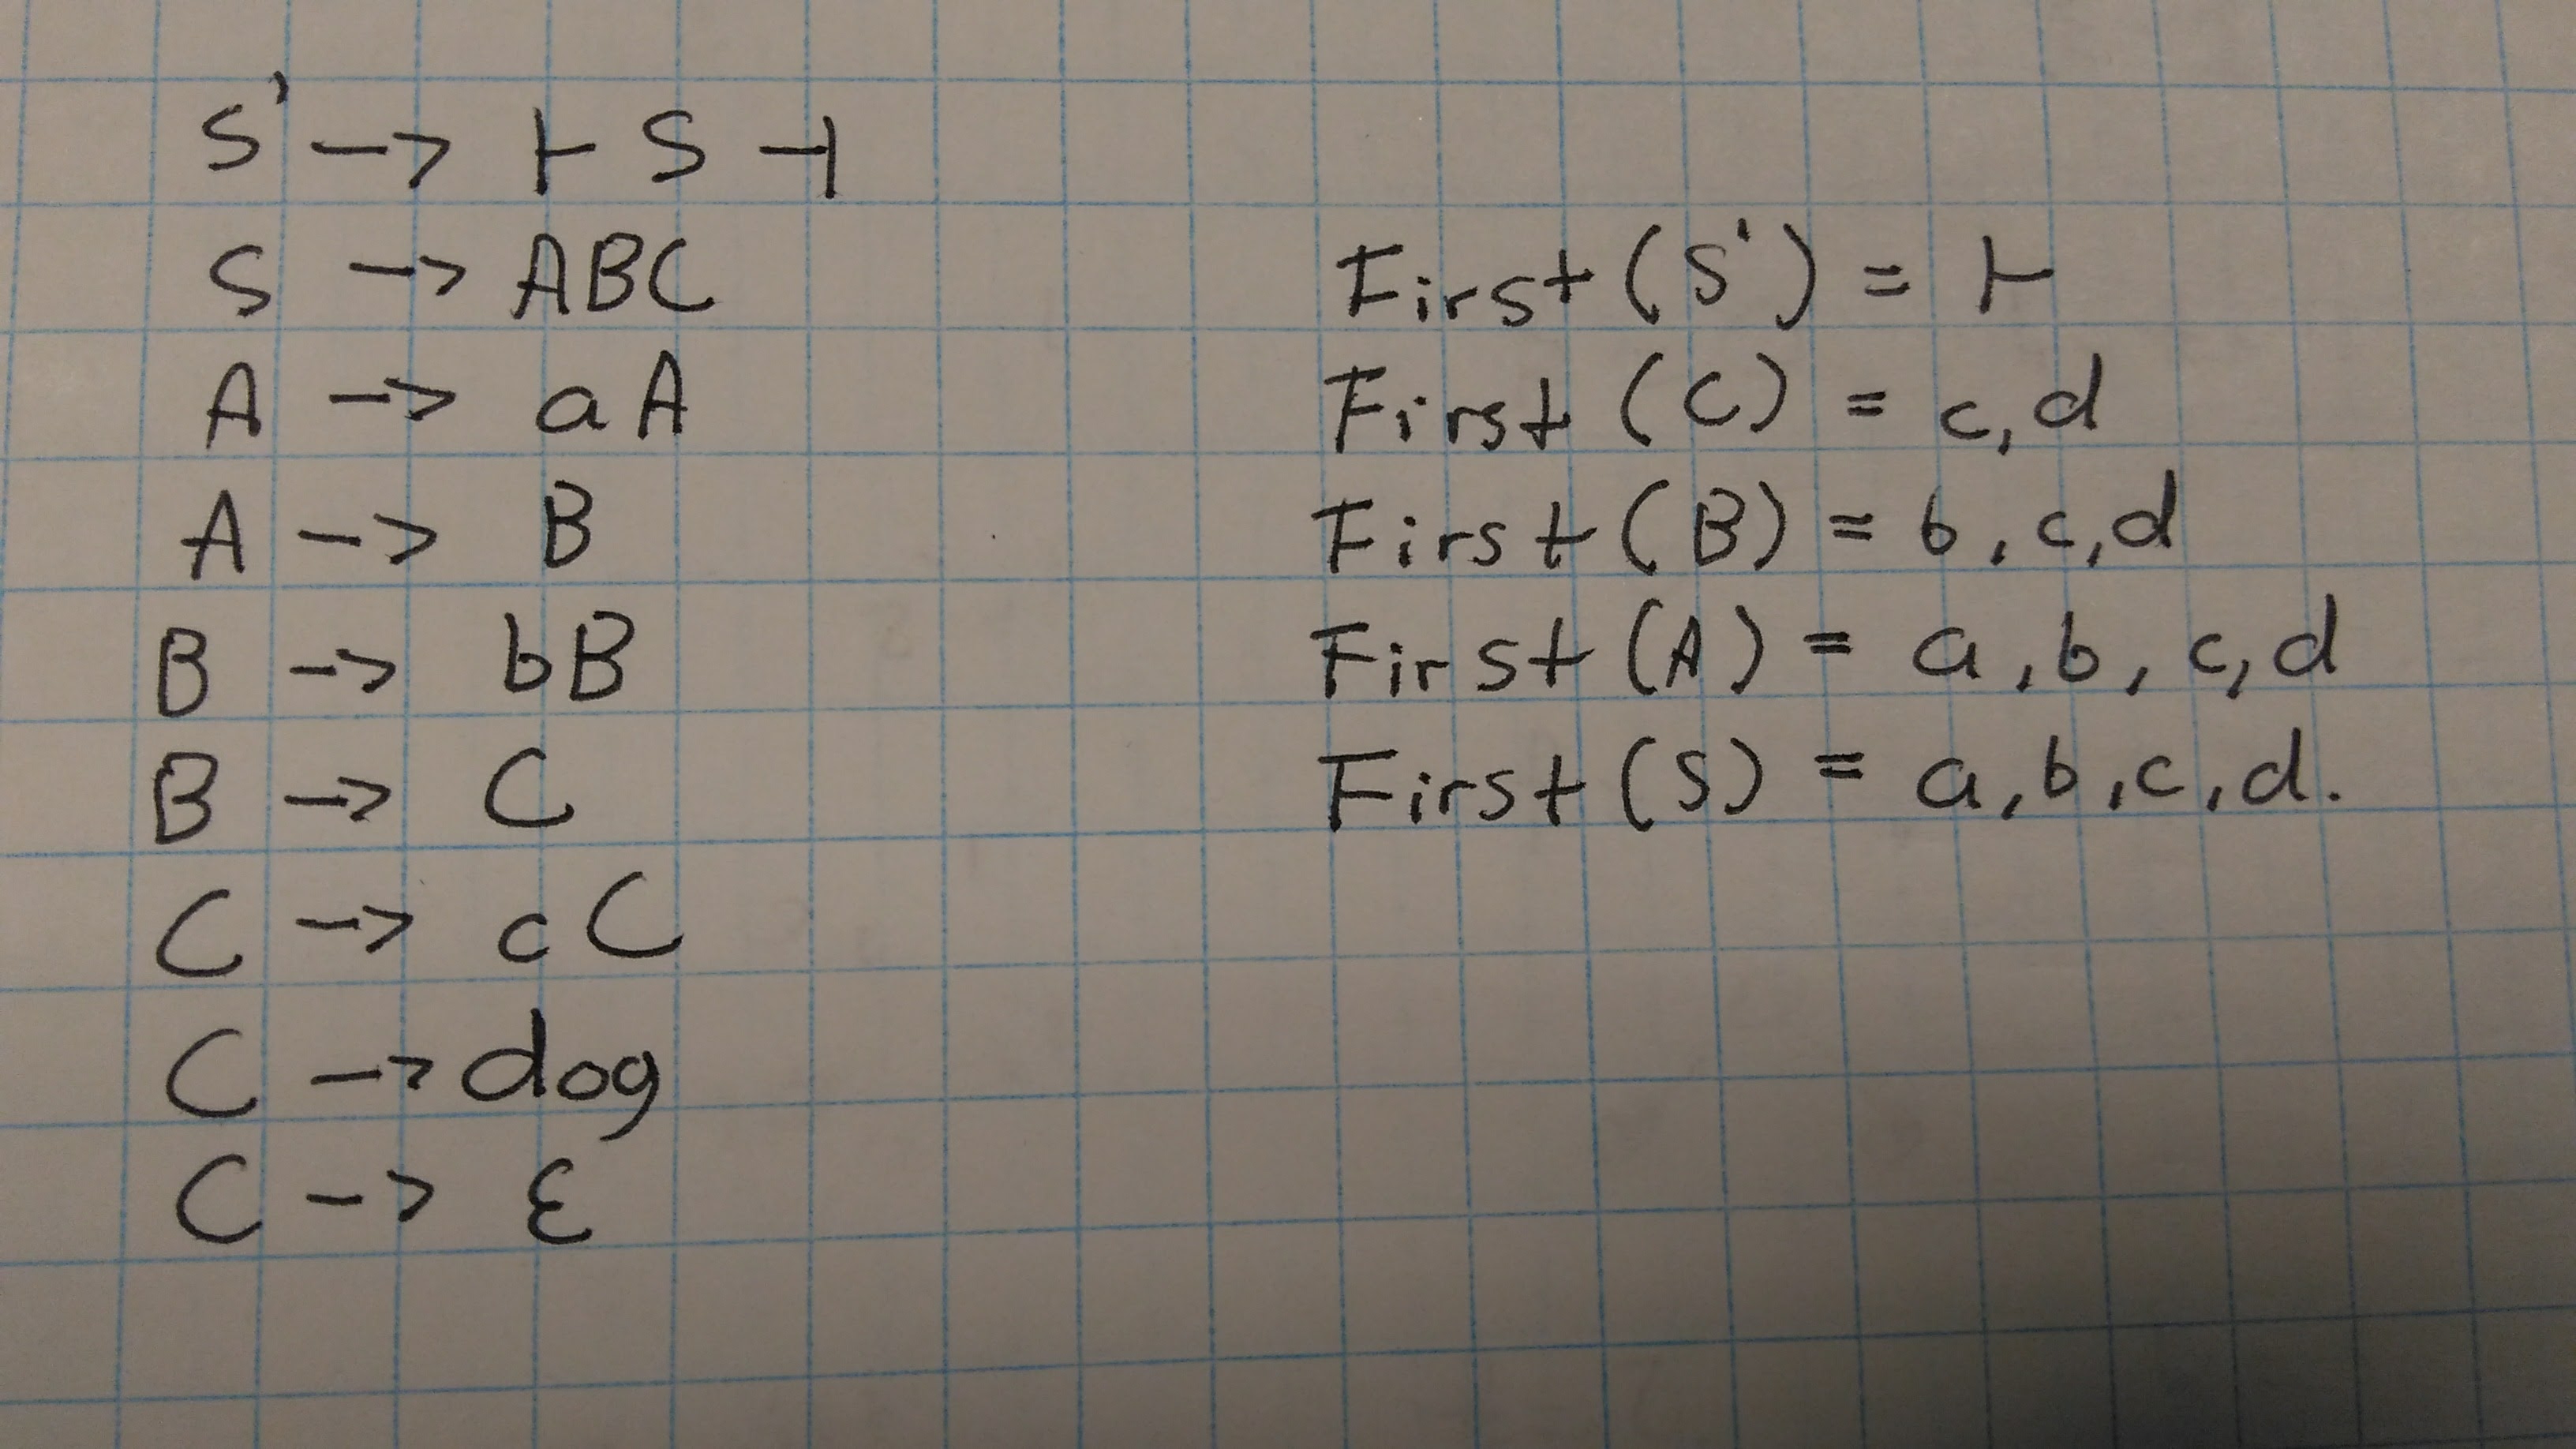 S' -> ⊢ S ⊣
S -> ABC
A -> aA
A -> B
B -> bB
B -> C
C -> cC
C -> dog
C -> ε
First(S') = ⊢
First(C) = c,d
First(B) = b,c,d
First(A) = a,b,c,d
First(S) = a,b,c,d.